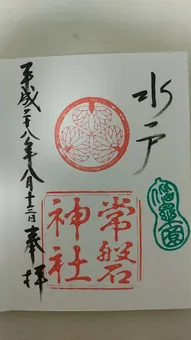 水戸
常磐
神社
平成二十八年八月十三日奉拝